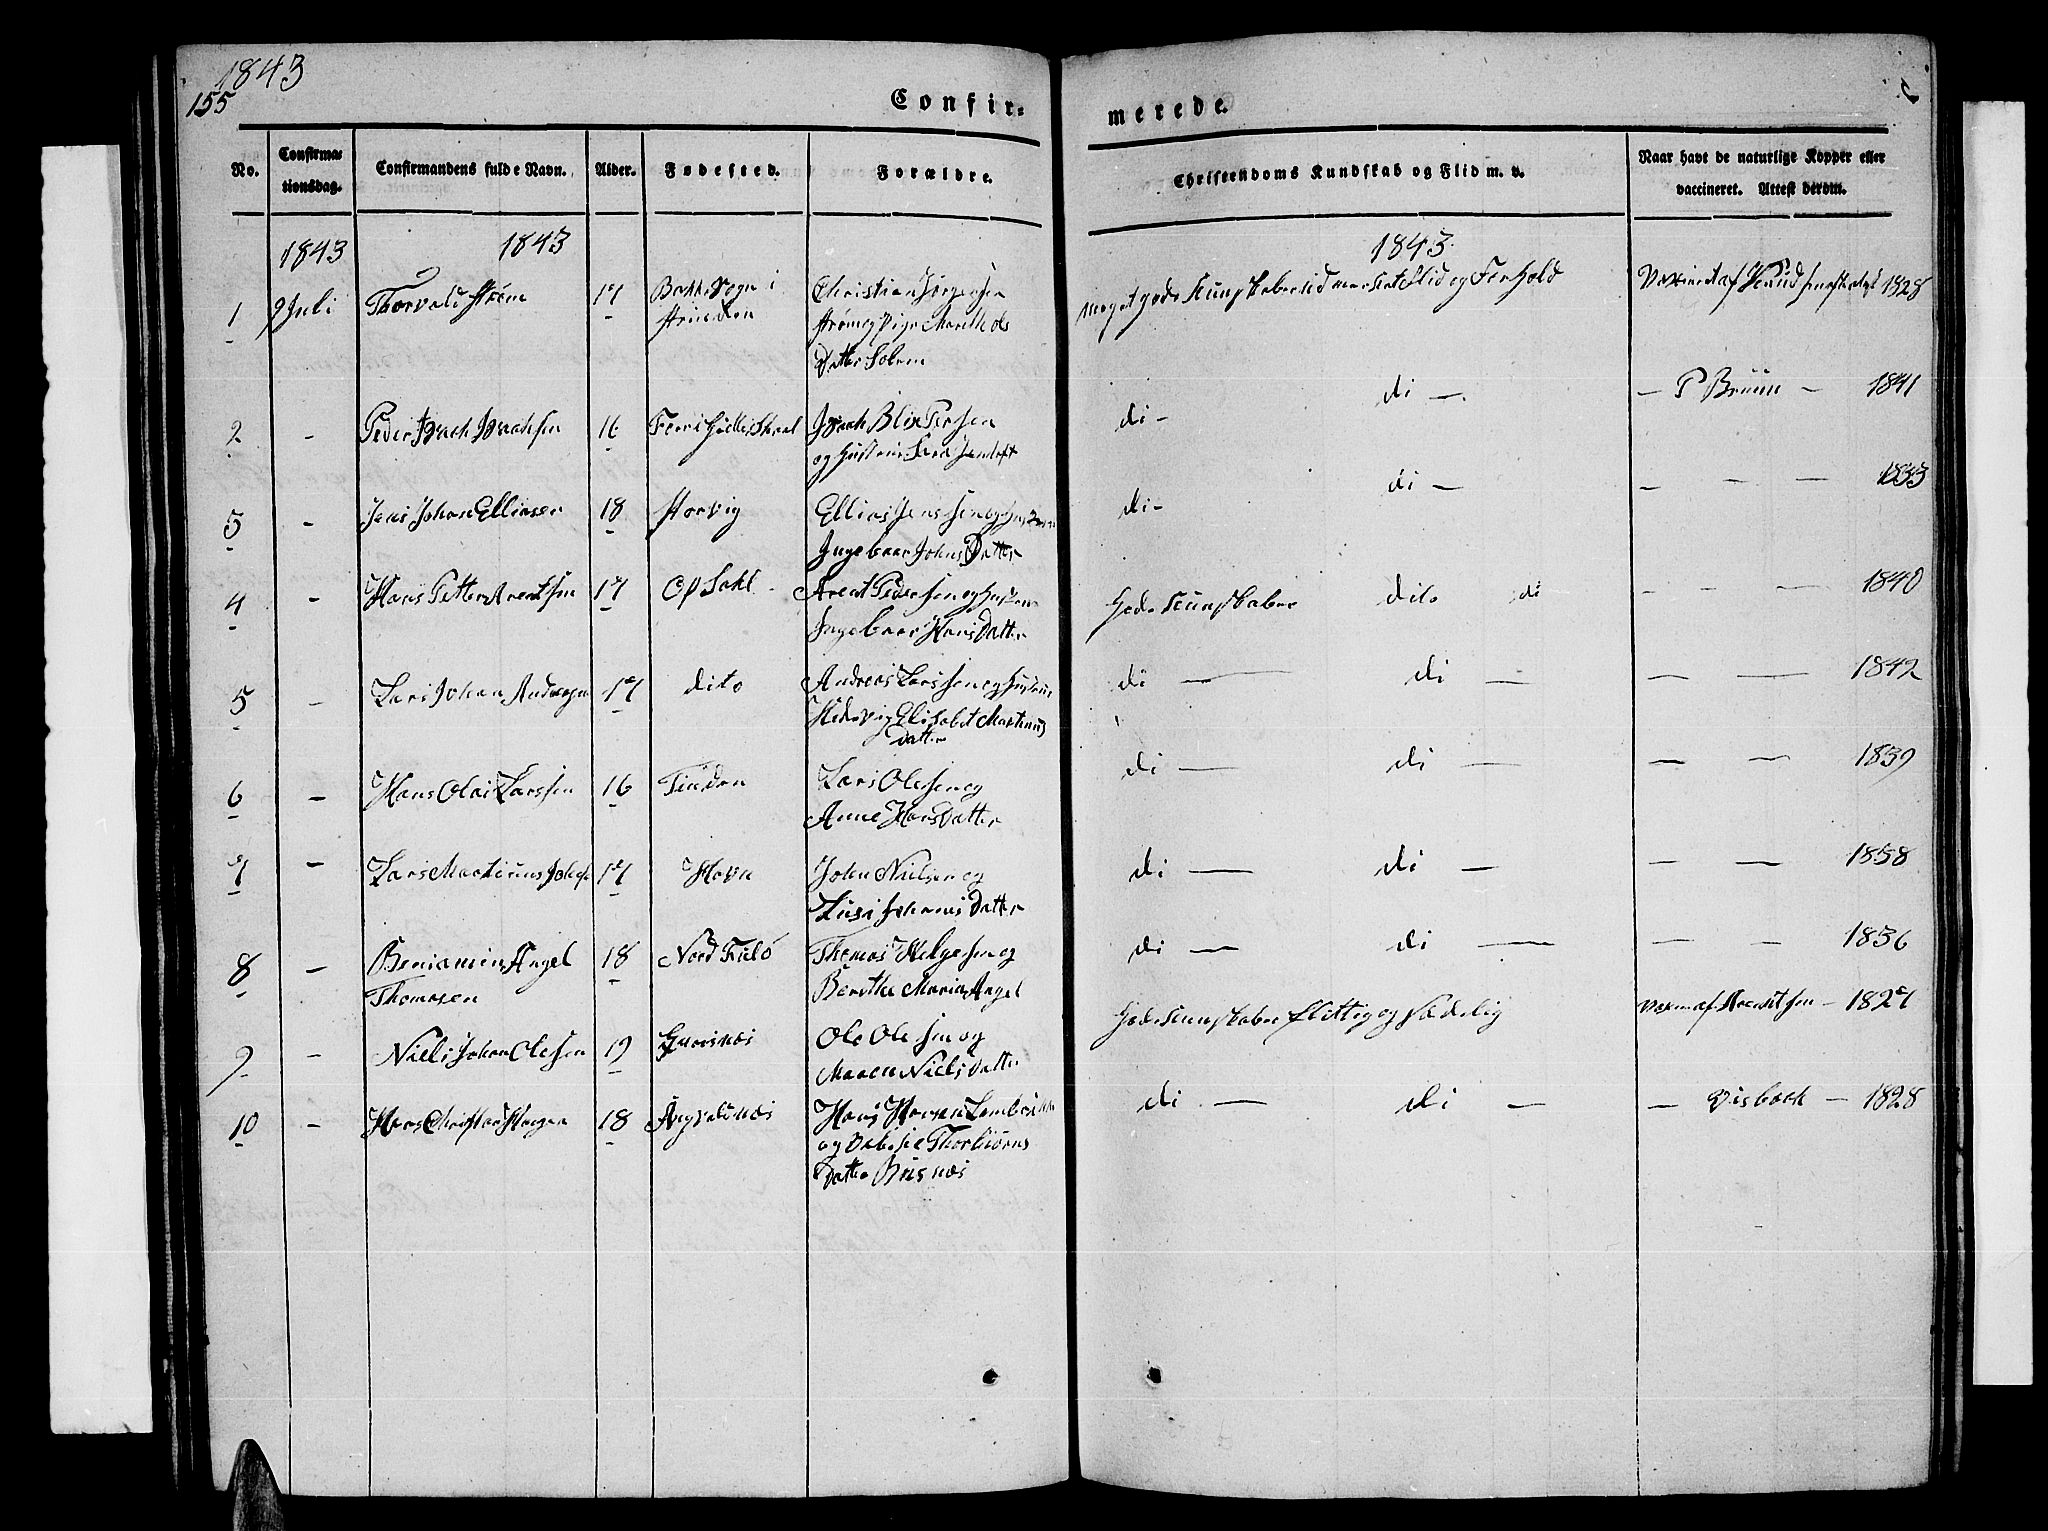 1843
155
Confir=
merede.
No.
Confirma=
tionsdag.
Confirmandens fulde Navn.
Alder.
Fødested.
Forældre.
Christendoms Kundskab og Flid m. v.
Naar havt de naturlige Kopper eller
vaccineret. Attest derom.
1843
1843
1843
1 9 Juli Thorvald Strøm 17 i Christian Jørgensen
Strøm og Pige Marith Ols
Datter Solem
meget gode Kunskaber Flid og Forhold
1828
2 - Peder Isach Isachsen 16 Isach Blix Persen
og Hustrue
di - di - - P Bruun - 1841
3 - Jens Johan Elliasen 18 Storvig Ellias Jenssen og Hustrue
Ingebaar Johns Datter
di - di - - - - 1833
4 - Hans Petter Arentsen 17 Arent Pedersen og Hustrue
Ingebaar Hans Datter
Gode Kunskaber dito di - - - 1840
5 - Lars Johan Andersen 17 dito Andreas Larssen og Hustrue
Hedevig Elisabet Martinus
Datter
di - di - - - 1842
6 - Hans Olai Larssen 16 Lars Olessen og
Anne Hans Datter
di - di - - - 1839
7 - Lars Martinus 17 Havn John Nielsen og
Johannis Datter
di - di - - - 1838
8 - Beniamin Angel 18 Thomas Helgesen og
Thomasen
Berethe Maria Angel
di - di - - - 1836
9 - Niels Johan Olessen 19 Ole Olessen og
Maren Niels Datter
Gode Kunskaber flittig og Sædelig
af Arentsen - 1827
10 - Hans 18 Hans Hansen
og Thorbiørns
Datter
di - di - - Visbach - 1828